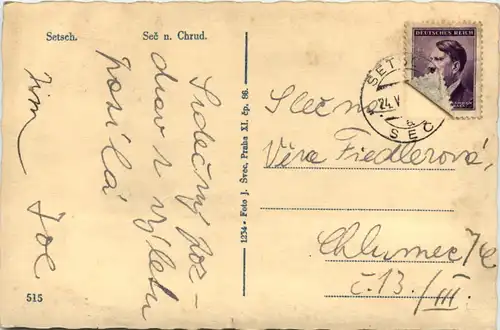 Setsch. Seč n. Chrud.
Srdečný poz-
drav z výletu
posílá
515
1234 - Foto J. Švec, Praha XI. čp. 86.
DEUTSCHES REICH
SEČ
24. V
Slečna
Věra Fiedlerová,
Chlumec
č. 13./III.